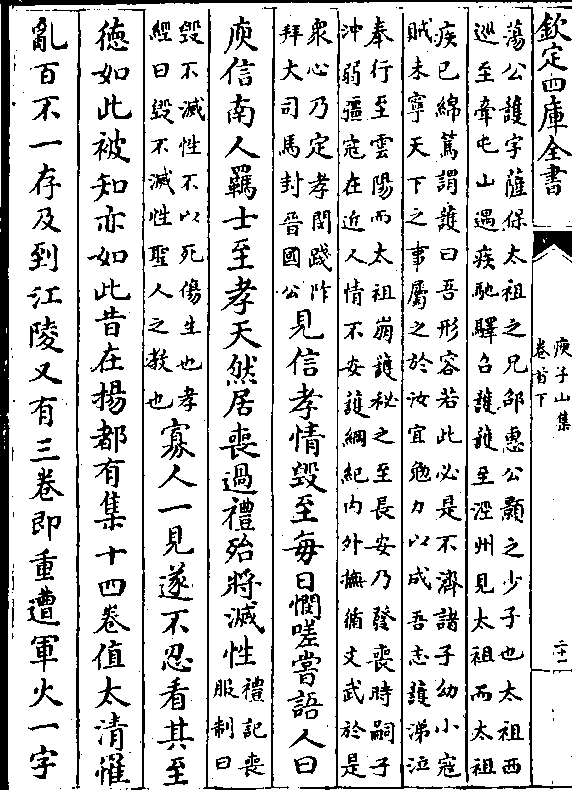 欽定四庫全書
庾子山集
卷首下
二十一
蕩公護字薩保太祖之兄邵惠公顥之少子也太祖西
巡至牽屯山遇疾馳驛召護護至涇州見太祖而太祖
疾已綿篤謂護曰吾形容若此必是不濟諸子幼小寇
賊未寧天下之事屬之於汝宜勉力以成吾志護涕泣
奉行至雲陽而太祖崩護秘之至長安乃發喪時嗣子
沖弱彊寇在近人情不安護綱紀内外撫循文武於是
衆心乃定孝閔踐阼
拜大司馬封晉國公
見信孝情毀至每日憫嗟嘗語人曰
庾信南人羈士至孝天然居喪過禮殆將滅性
禮記喪
服制曰
毀不滅性不以死傷生也孝
經曰毀不滅性聖人之教也
寡人一見遂不忍看其至
徳如此被知亦如此昔在揚都有集十四卷值太清罹
亂百不一存及到江陵又有三卷即重遭軍火一字